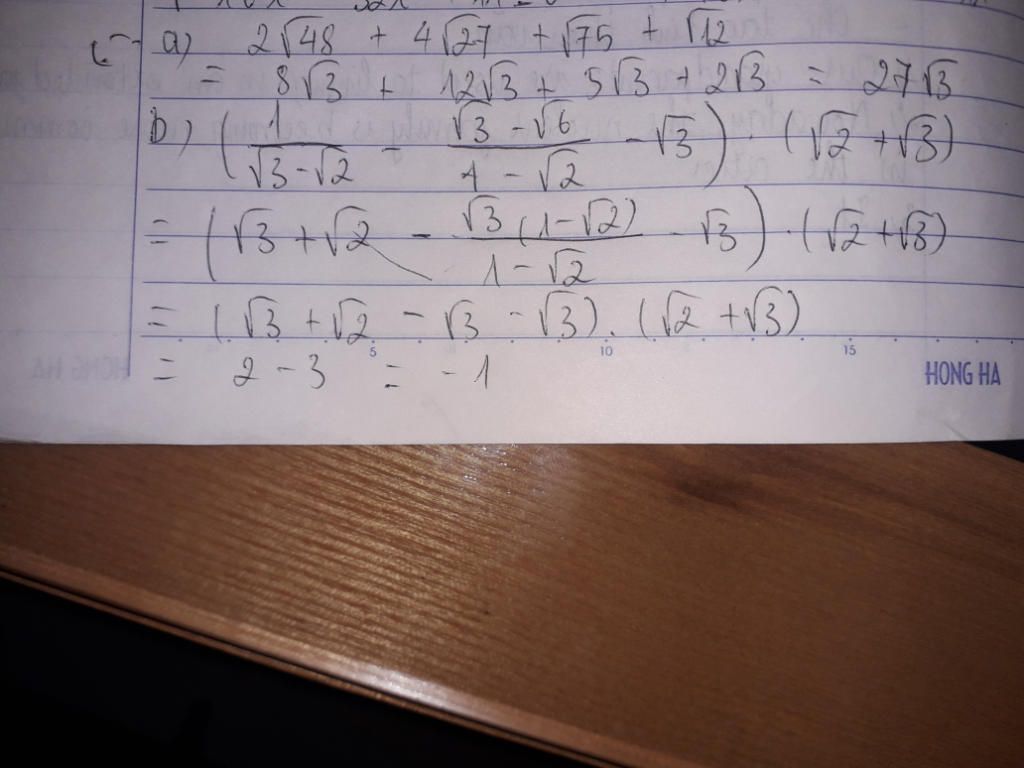 a) 2√48 + 4√27 + √75 + √12
= 8√3 + 12√3 + 5√3 + 2√3 = 27√3
b) (1/(√3-√2) - (√3-√6)/(1-√2) - √3) (√2+√3)
= (√3+√2 - √3(1-√2)/(1-√2) - √3) . (√2+√3)
= (√3+√2 - √3 - √3) . (√2+√3)
5 10 15
= 2-3 = -1
HONG HA